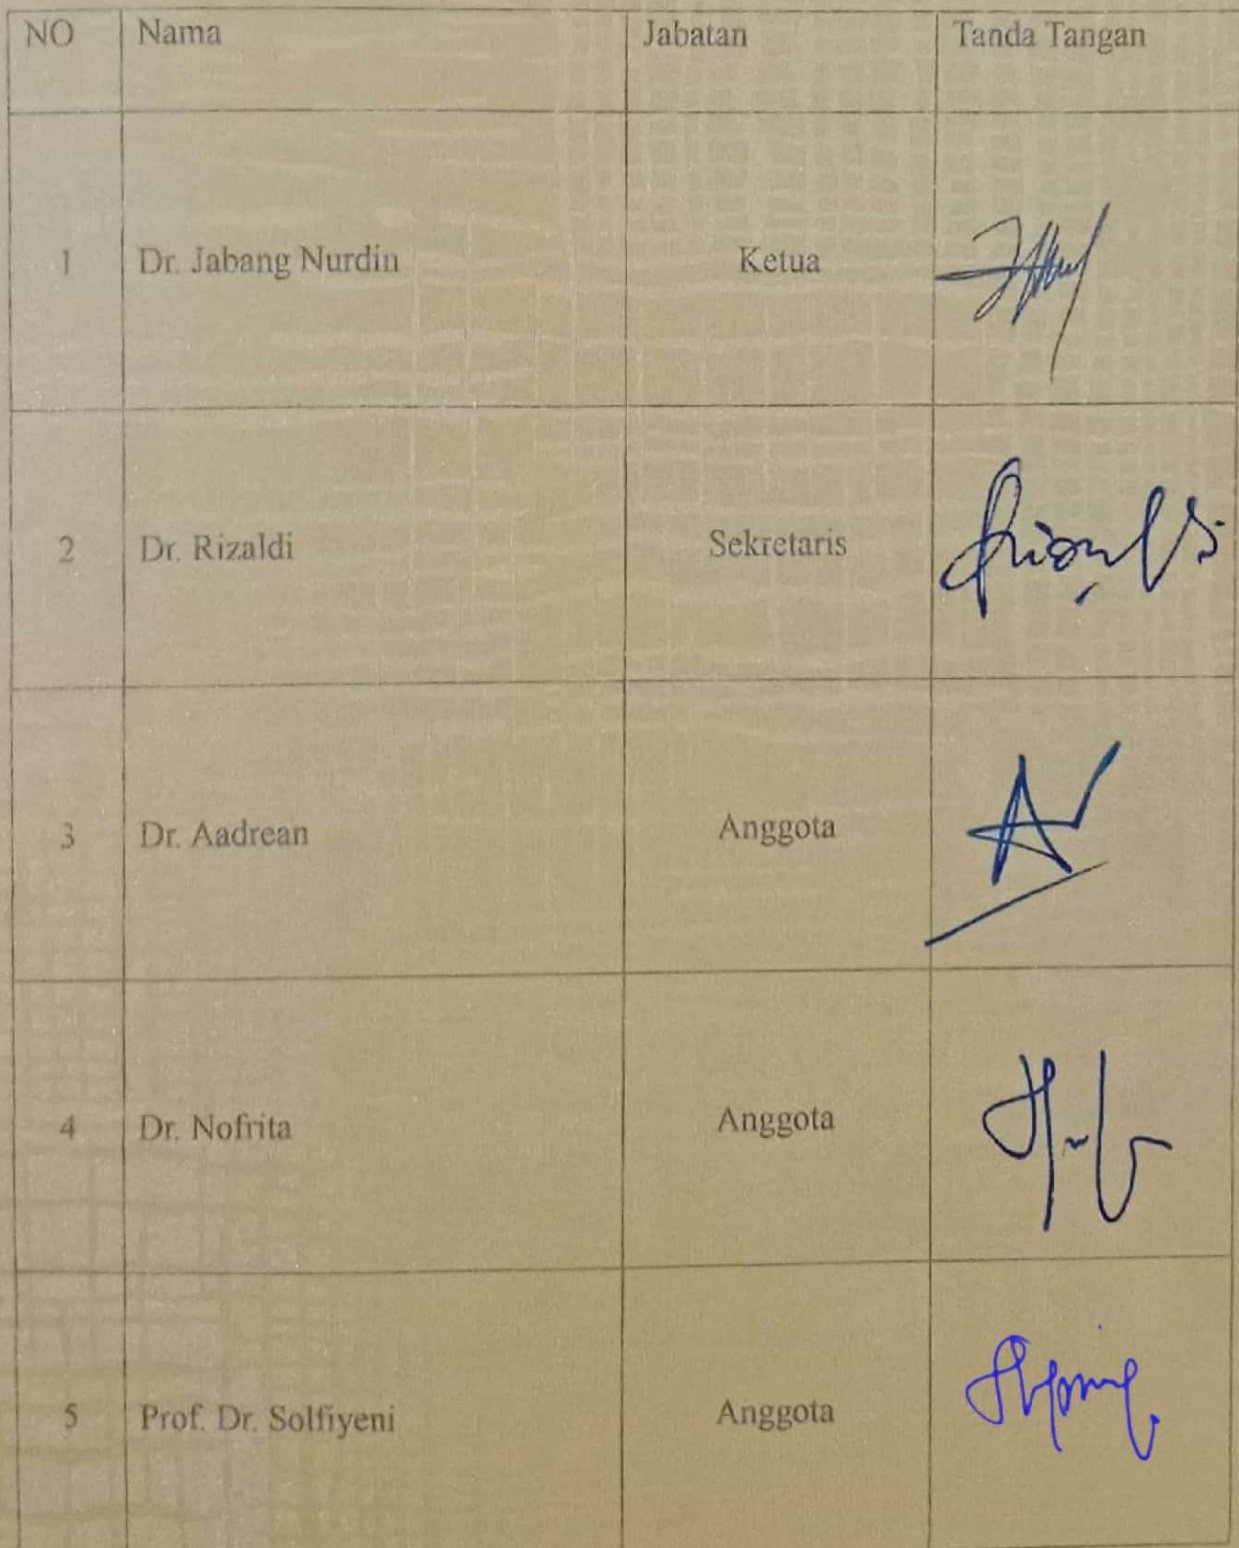 NO Nama Jabatan Tanda Tangan
1 Dr. Jabang Nurdin Ketua
2 Dr. Rizaldi Sekretaris
3 Dr. Aadrean Anggota
4 Dr. Nofrita Anggota
5 Prof. Dr. Solfiyeni Anggota